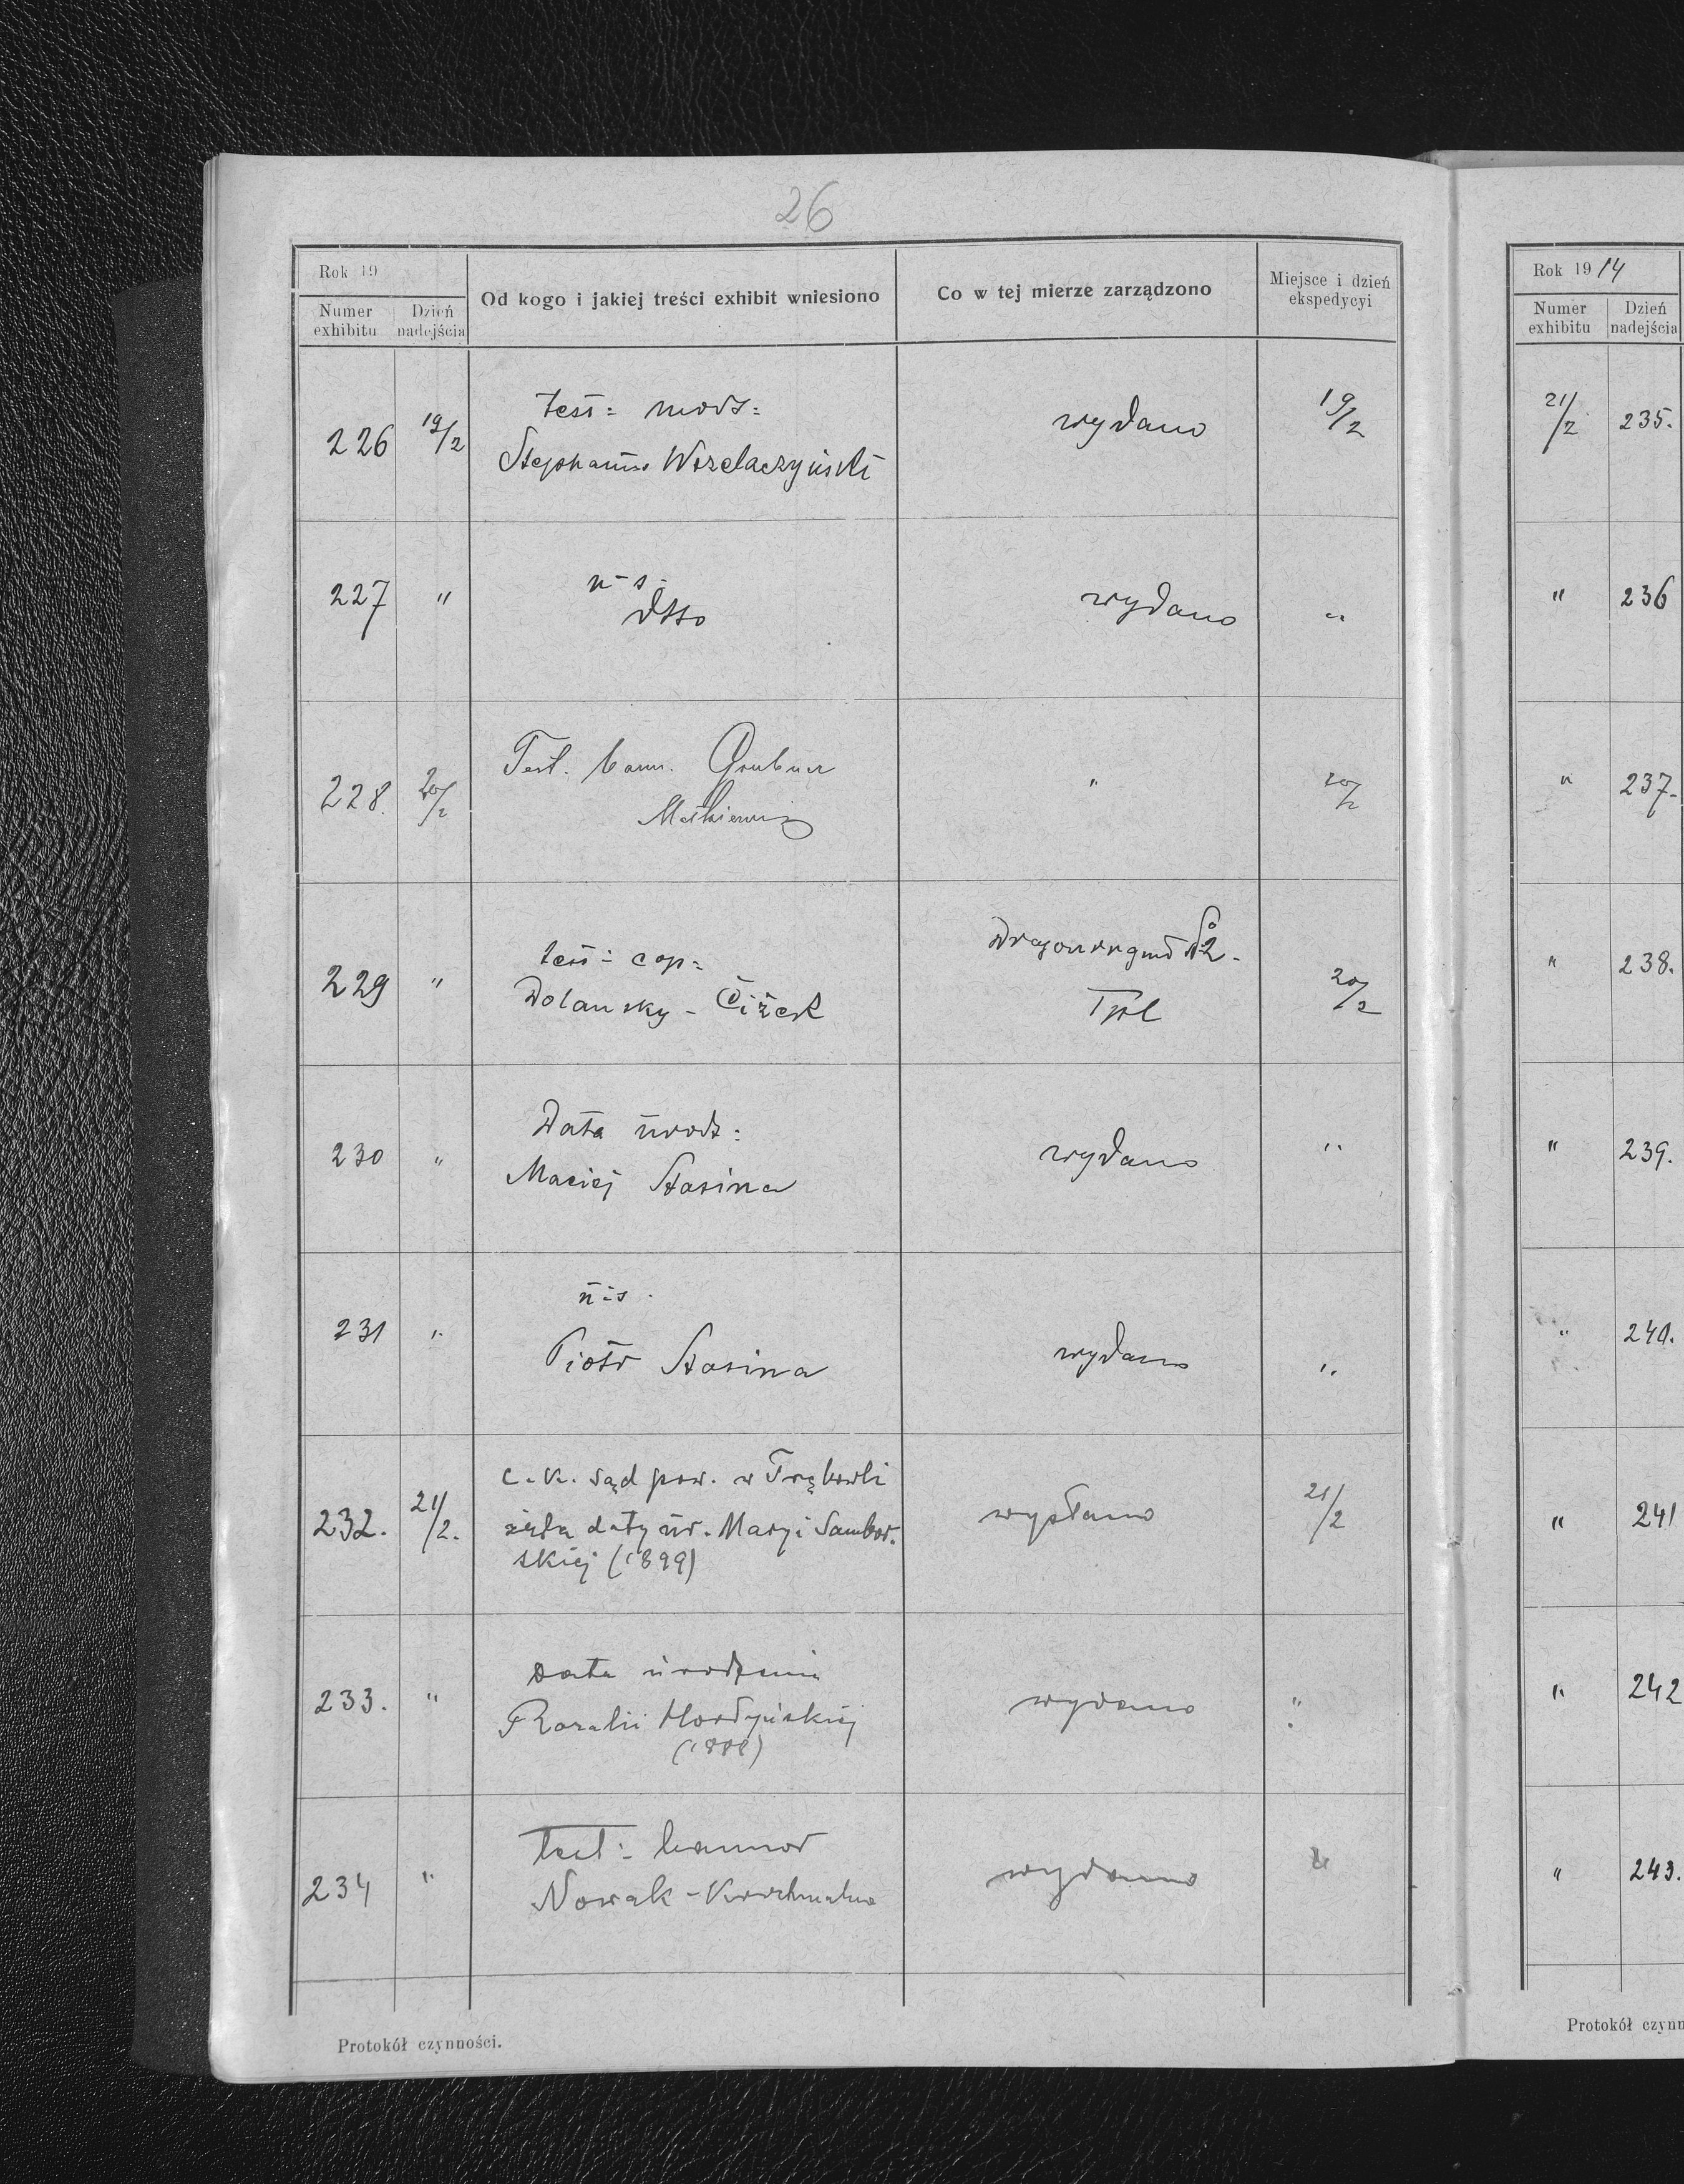 26
Rok 19
Numer exhibitu
Dzień nadejścia
Od kogo i jakiej treści exhibit wniesiono
Co w tej mierze zarządzono
Miejsce i dzień ekspedycyi
226 19/2
test:
wydano 19/2
227 "
dtto
wydano "
228. 20/2 Test. bann. Grubner
" 20/2
229 " test: cop:
Dolansky - Čižek
Tpl 20/2
230 " Data urodz:
Maciej Stasina
wydano "
231 "
Piotr Stasina
wydano "
232. 21/2. c. k. sąd pow. w Trębowli
żąda daty ur. Maryi Sambor-
skiej (1899)
wysłano 21/2
233. " Data urodzenia
Rozalii Hordyńskiej
wydano "
234 " test: bannor
Nowak - Krochmalna
wydano "
Protokół czynności.
Rok 1914
Numer exhibitu
Dzień nadejścia
21/2 235.
" 236
" 237.
" 238.
" 239.
" 240.
" 241
" 242
" 243.
Protokół czynn